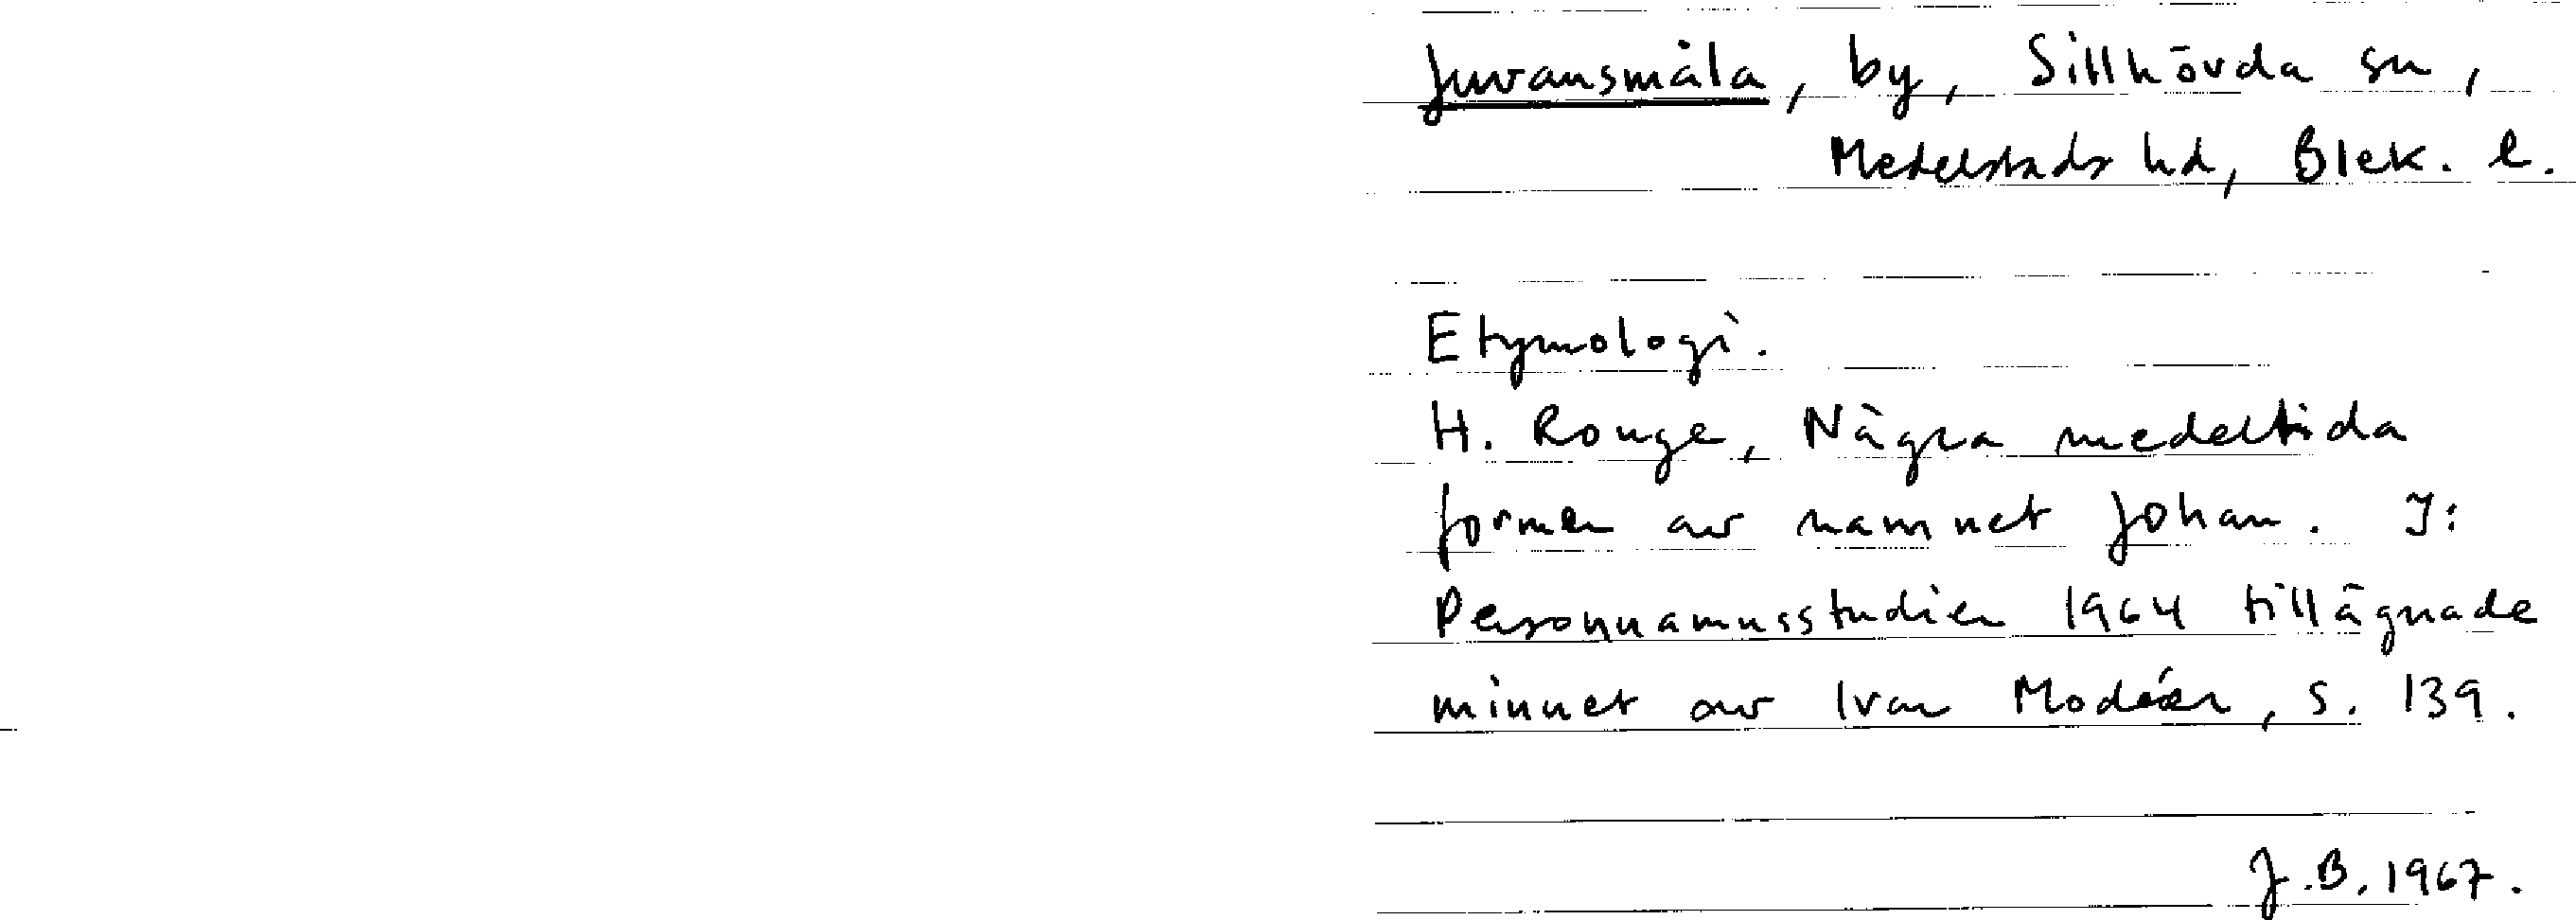 Juvansmåla, by, Sillhövda sn,
Medelstads hd, Blek. l.
Etymologi.
H. Ronge, Några medeltida
former av namnet Johan. I:
Personnamnsstudier 1964 tillägnade
minnet av Ivar Modéer, s. 139.
J.B. 1967.